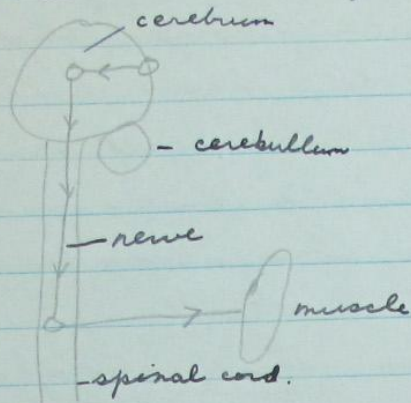 cerebrum
cerebullum
nerve
muscle
spinal cord.